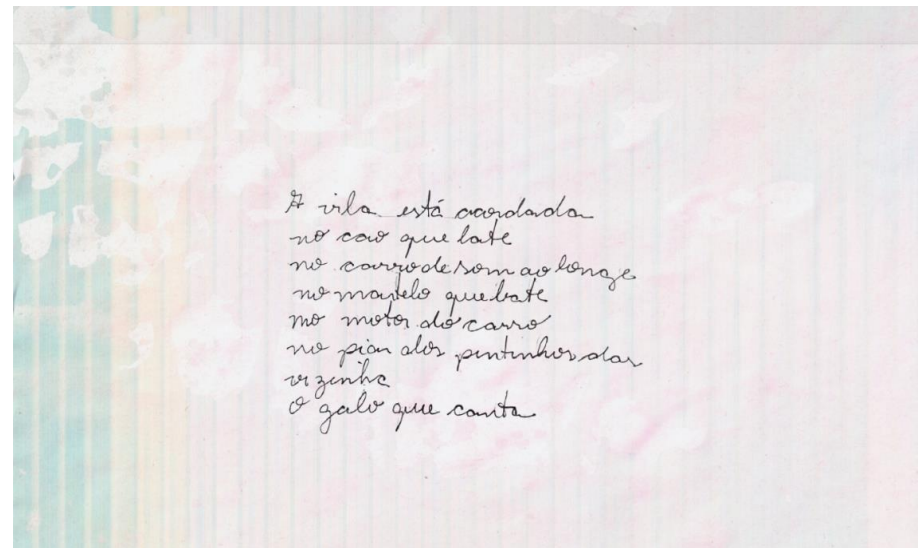 A vila está acordada
no cão que late
no carro de som ao longe
no martelo que bate
no motor do carro
no piar dos pintinhos da
vizinha
O galo que canta